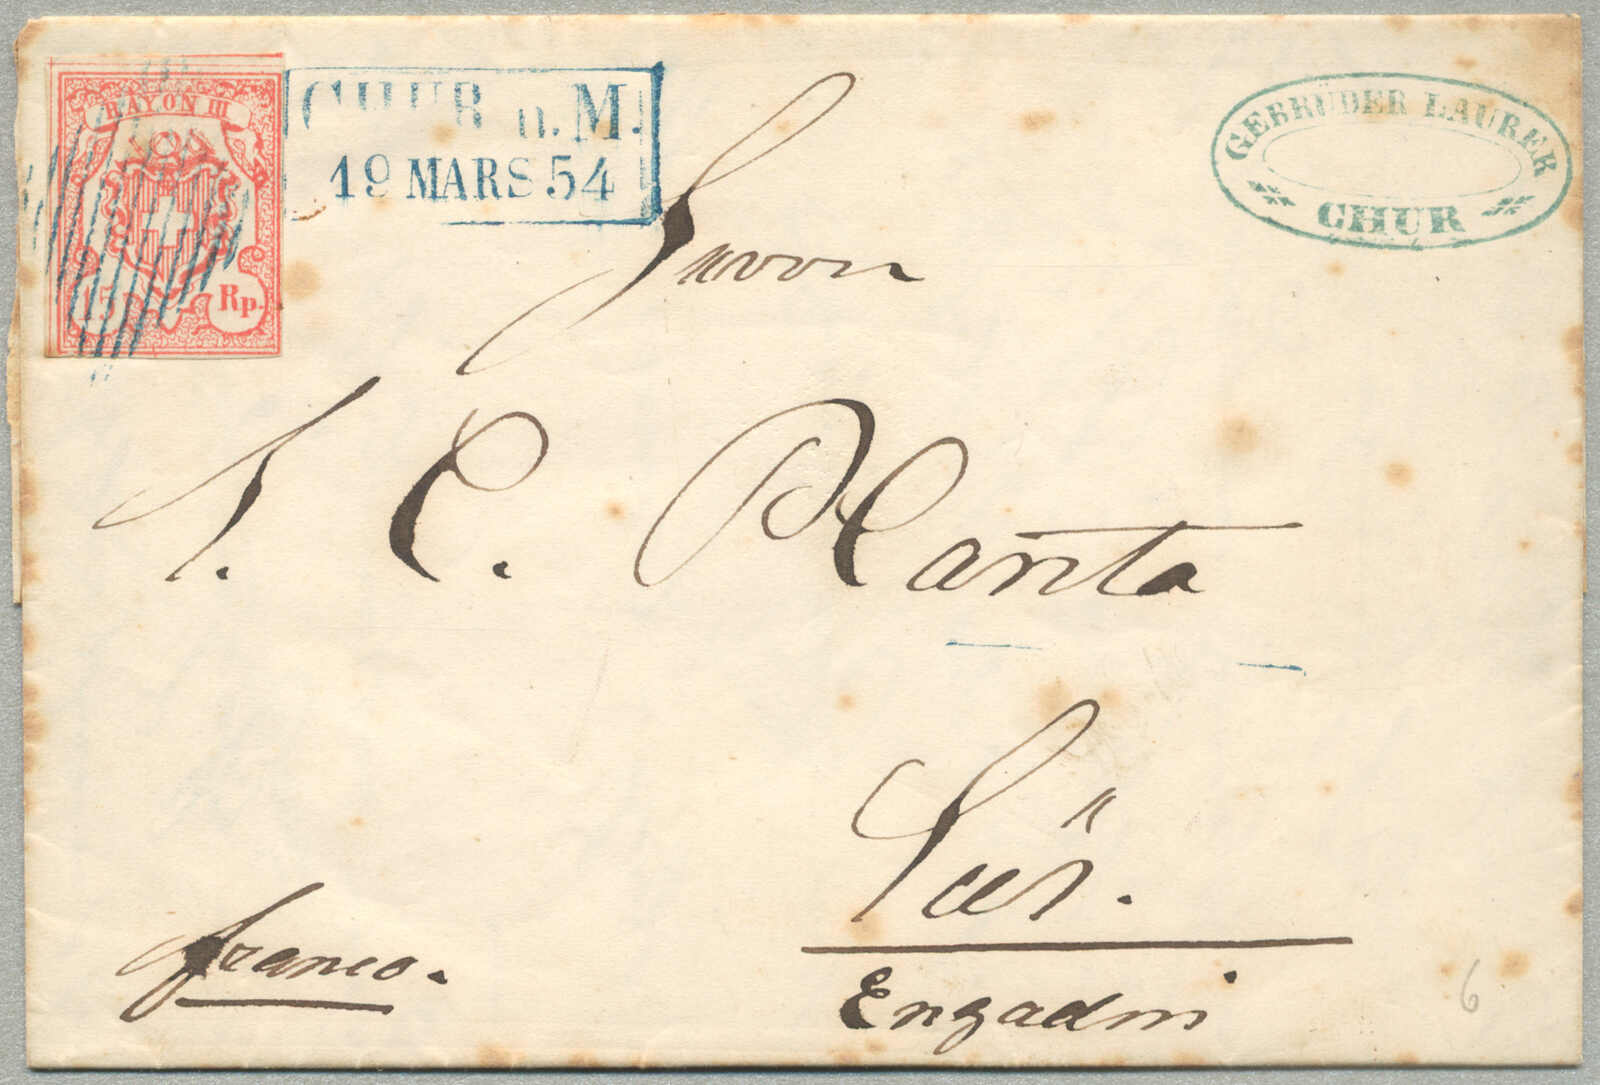 RAYON III
15 Rp.
CHUR n. M.
19 MARS 54
GEBRÜDER LAURER
CHUR
Herrn
J. C. Planta
Süs.
franco.
Engadin
6